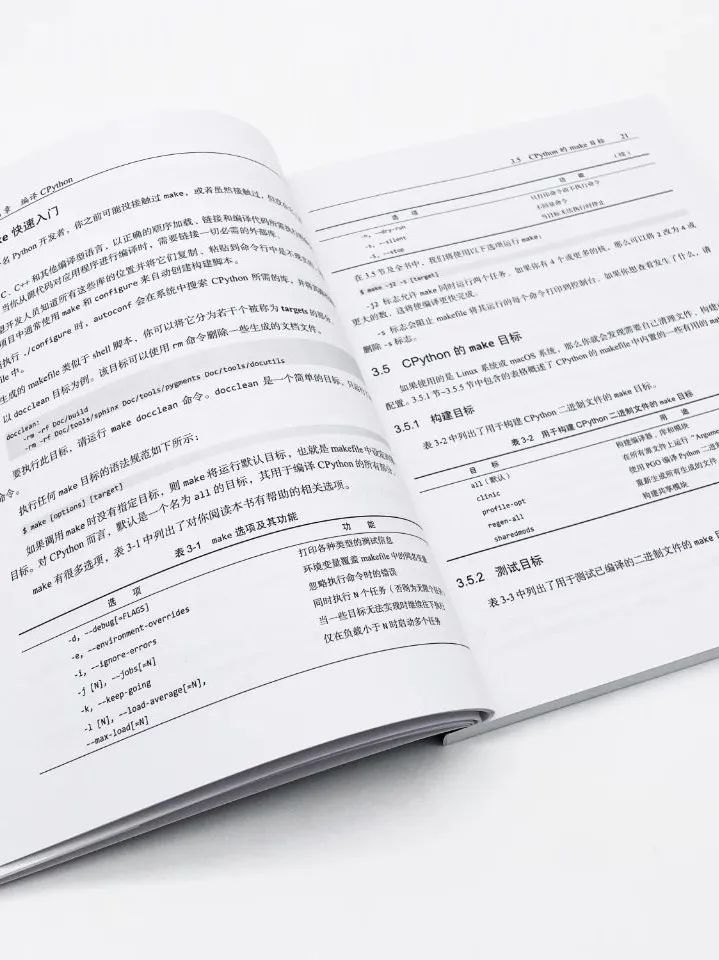 章 编译 CPython
快速入门
名 Python 开发者，你之前可能没接触过 make，或者虽然接触过，但
C、C++ 和其他编译型语言，以正确的顺序加载、链接和编译代码所需执行
当你从源代码对应用程序进行编译时，需要链接一切必需的外部库。
望开发人员知道所有这些库的位置并将它们复制、粘贴到命令行中是不
项目中通常使用 make 和 configure 来自动创建构建脚本。
执行 ./configure 时，autoconf 会在系统中搜索 CPython 所需的库，并
file 中。
生成的 makefile 类似于 shell 脚本，你可以将它分为若干个被称为 targets 的部分
以 docclean 目标为例。该目标可以使用 rm 命令删除一些生成的文档文件。
docclean:
-rm -rf Doc/build
-rm -rf Doc/tools/sphinx Doc/tools/pygments Doc/tools/docutils
要执行此目标，请运行 make docclean 命令。docclean 是一个简单的目标，只运行
命令。
执行任何 make 目标的语法规范如下所示：
$ make [options] [target]
如果调用 make 时没有指定目标，则 make 将运行默认目标，也就是 makefile 中设定的
目标。对 CPython 而言，默认是一个名为 all 的目标，其用于编译 CPython 的所有部分。
make 有很多选项，表 3-1 中列出了对你阅读本书有帮助的相关选项。
表 3-1 make 选项及其功能
选 项 功 能
-d, --debug[=FLAGS] 打印各种类型的调试信息
-e, --environment-overrides 环境变量覆盖 makefile 中的同名变量
-i, --ignore-errors 忽略执行命令时的错误
-j [N], --jobs[=N] 同时执行 N 个任务（否则为无限个任务）
-k, --keep-going 当一些目标无法实现时继续往下执行
-l [N], --load-average[=N], 仅在负载小于 N 时启动多个任务
--max-load[=N]
3.5 CPython 的 make 目标 21
（续）
选 项 功 能
-n, --dry-run 只打印命令而不执行命令
-s, --silent 不回显命令
-S, --stop 当目标无法执行时停止
在 3.5 节及全书中，我们将使用以下选项运行 make：
$ make -j2 -s [target]
-j2 标志允许 make 同时运行两个任务。如果你有 4 个或更多的核，那么可以将 2 改为 4 或
更大的数，这将使编译更快完成。
-s 标志会阻止 makefile 将其运行的每个命令打印到控制台。如果你想查看发生了什么，请
删除 -s 标志。
3.5 CPython 的 make 目标
如果使用的是 Linux 系统或 macOS 系统，那么你就会发现需要自己清理文件、构建
配置。3.5.1 节~3.5.5 节中包含的表格概述了 CPython 的 makefile 中内置的一些有用的 ma
3.5.1 构建目标
表 3-2 中列出了用于构建 CPython 二进制文件的 make 目标。
表 3-2 用于构建 CPython 二进制文件的 make 目标
目 标 用 途
all（默认） 构建编译器、库和模块
clinic 在所有源文件上运行“Argume
profile-opt 使用 PGO 编译 Python 二进
regen-all 重新生成所有生成的文件
sharedmods 构建共享模块
3.5.2 测试目标
表 3-3 中列出了用于测试已编译的二进制文件的 make